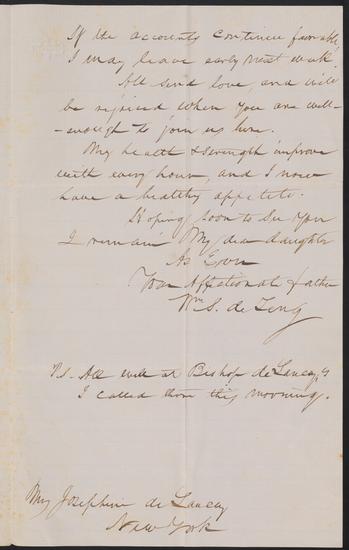 If the accounts continue favorable
I may leave early next week.
All send love, and will
be rejoiced when you are well-
-enough to join us here.
My health & strength improve
with every hour, and I now
have a healthy appetite.
Hoping soon to see you
I remain My dear daughter
As Ever
Your Affectionate father
Wm S. de Zeng
P.S. All well at Bishop de Lancey's
I called there this morning.
Josephine de Lancey
New York